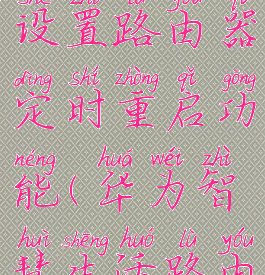 shè zhì lù yóu qì
设置路由器
dìng shí zhòng qǐ gōng
定时重启功
néng huá wéi zhì
能(华为智
huì shēng huó lù yóu
慧生活路由